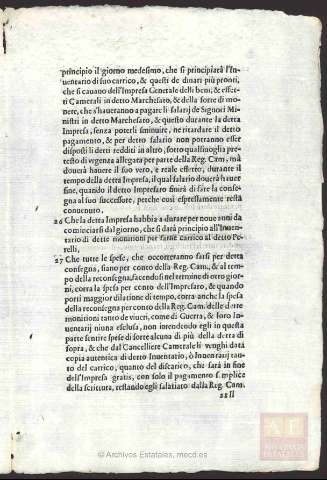 principio il giorno medesimo, che si principiarà l'In-
uentario di suo carrico, & questi de dinari più pronti,
che si cauano dell'Impresa Generale delli beni, & effet-
ti Camerali in detto Marchesato, & della sorte di mo-
nete, che s'haueranno a pagar li salarij de Signori Mi-
nistri in detto Marchesato, & questo durante la detta
Impresa, senza poterli sminuire, ne ritardare il detto
pagamento, & per detto salario non potranno esser
disposti li detti redditi in altro, sotto qual si voglia pre-
testo di vrgenza allegata per parte della Reg. Cam. mà
douerà hauere il suo vero, e reale effetto, durante il
tempo della detta Impresa, il qual salario douerà hauer
fine, quando il detto Impresaro finirà di fare la conse-
gna al suo successore, perche così espressamente resta
conuenuto.
26 Che la detta Impresa habbia a durare per noue anni da
cominciarsi dal giorno, che si darà principio all'Inuen-
tario di dette monitioni per farne carrico al detto Pe-
relli.
27 Che tutte le spese, che occorreranno farsi per detta
consegna, siano per conto della Reg. Cam. & al tempo
della reconsegna, facendosi nel termine di otto gior-
ni, corra la spesa per conto dell'Impresaro, & quando
porti maggior dilatione di tempo, corra anche la spesa
della reconsegna per conto della Reg. Cam. delle dette
monitioni tanto de viueri, come di Guerra, & loro In-
uentarij niuna esclusa, non intendendo egli in questa
parte sentire spese di sorte alcuna di più della detta di
sopra, & che dal Cancelliere Camerale li venghi data
copia autentica di detto Inuentario, ò Inuentarij tan-
to del carrico, quanto del discarico, che sarà in fine
dell'Impresa gratis, con solo il pagamento semplice
della scrittura, restando egli salariato dalla Reg. Cam.
28 Il
© Archivos Estatales, mecd.es
ARCHIVOS ESTATALES